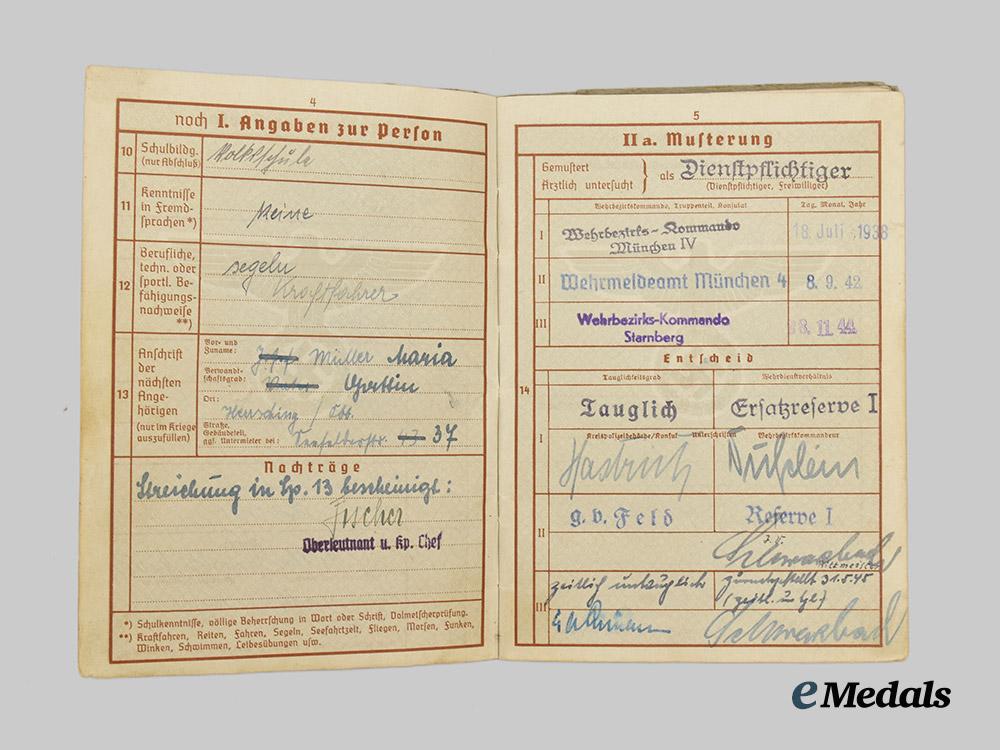 4
noch I. Angaben zur Person
10 Schulbildg. (nur Abschluß) Volksschule
11 Kenntnisse in Fremd- sprachen *) Keine
12 Berufliche, techn. oder sportl. Be- fähigungs- nachweise **)
segeln
Kraftfahrer
13 Anschrift der nächsten Ange- hörigen (nur im Kriege auszufüllen)
Vor- und Zuname: Josef Müller Maria
Verwandt- schaftsgrad: Vater Gattin
Ort:
Straße, Gebäudeteil, ggf. Untermieter bei: 43 37
Nachträge
Streichung in Sp. 13 bescheinigt:
Fischer
Oberleutnant u. Kp. Chef
*) Schulkenntnisse, völlige Beherrschung in Wort oder Schrift, Dolmetscherprüfung.
**) Kraftfahren, Reiten, Fahren, Segeln, Seefahrtzeit, Fliegen, Morsen, Funken,
Winken, Schwimmen, Leibesübungen usw.
5
II a. Musterung
Gemustert
Ärztlich untersucht } als Dienstpflichtiger
(Dienstpflichtiger, Freiwilliger)
Wehrbezirkskommando, Truppenteil, Konsulat Tag, Monat, Jahr
I Wehrbezirks-Kommando München IV 18. Juli 1938
II Wehrmeldeamt München 4 8. 9. 42
III Wehrbezirks-Kommando Starnberg 8. 11. 44
14
Entscheid
Tauglichkeitsgrad Wehrdienstverhältnis
I Tauglich Ersatzreserve I
Kreispolizeibehörde/Konsul Unterschriften Wehrbezirkskommandeur
II g. v. Feld Reserve I
J. V.
Rittmeister
III zeitlich untauglich zurückgestellt 31.5.45
(zeitl. u tgl.)
eMedals